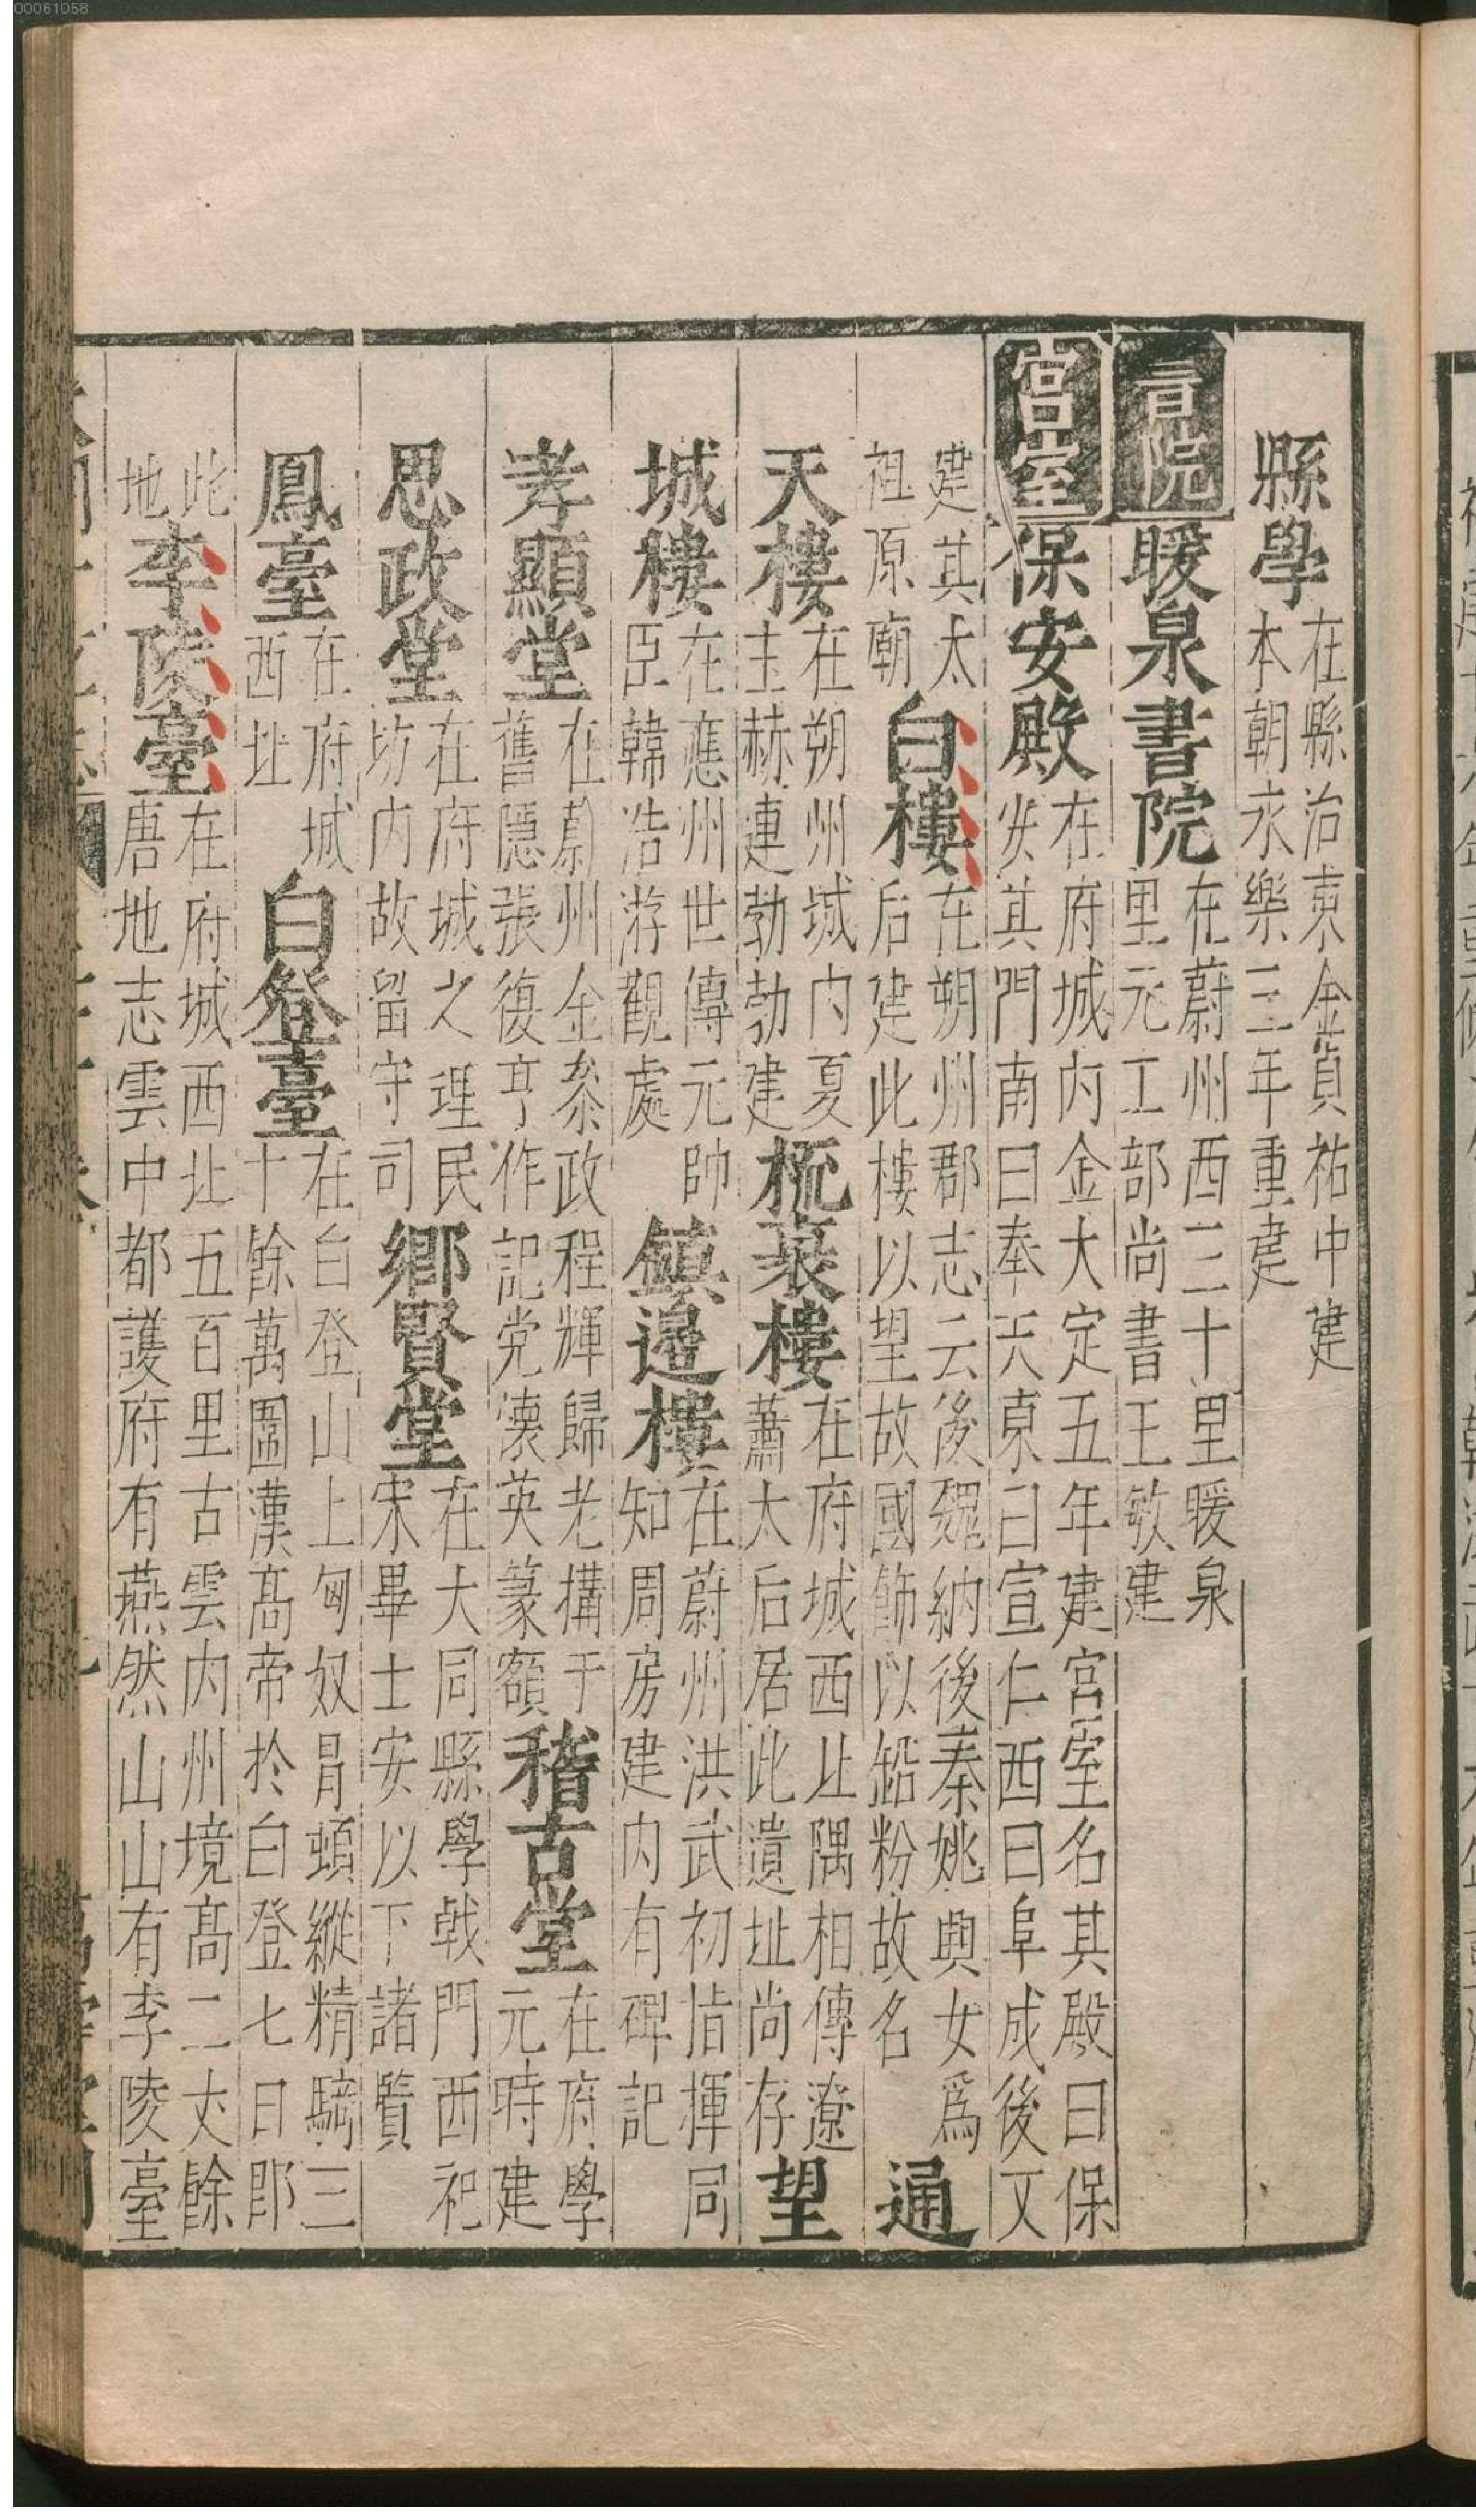 縣學在縣治東金貞祐中建
本朝永樂三年重建
書院暖泉書院在蔚州西三十里暖泉
里元工部尚書王敏建
宮室保安殿在府城内金大定五年建宮室名其殿曰保
安其門南曰奉天東曰宣仁西曰阜成後又
建其太
祖原廟
白樓在朔州郡志云後魏納後秦姚興女爲
后建此樓以望故國飾以鉛粉故名
通
天樓在朔州城内夏
主赫連勃勃建
梳裝樓在府城西北隅相傳遼
蕭太后居此遺址尚存
望
城樓在應州世傳元帥
臣韓浩游觀處
鎮邊樓在蔚州洪武初指揮同
知周房建内有碑記
孝顯堂在蔚州金叅政程輝歸老構于
舊隱張復亨作記党懷英篆額
稽古堂在府學
元時建
思政堂在府城之理民
坊内故留守司
鄉賢堂在大同縣學戟門西祀
宋畢士安以下諸賢
鳳臺在府城
西北
白登臺在白登山上匈奴冒頓縱精騎三
十餘萬圍漢高帝於白登七日即
此
地
李陵臺在府城西北五百里古雲内州境高二丈餘
唐地志雲中都護府有燕然山山有李陵臺
00061058